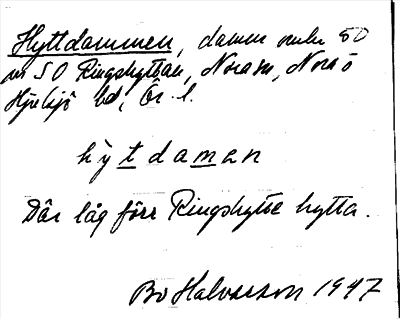 Hyttdammen, damm 50
m SO Ringshyttan, Nora sn, Nora o
Hjulsjö bd, Ör. l.
hytdaman
Där låg förr Ringshytte hytta.
Bo Halvarson 1947